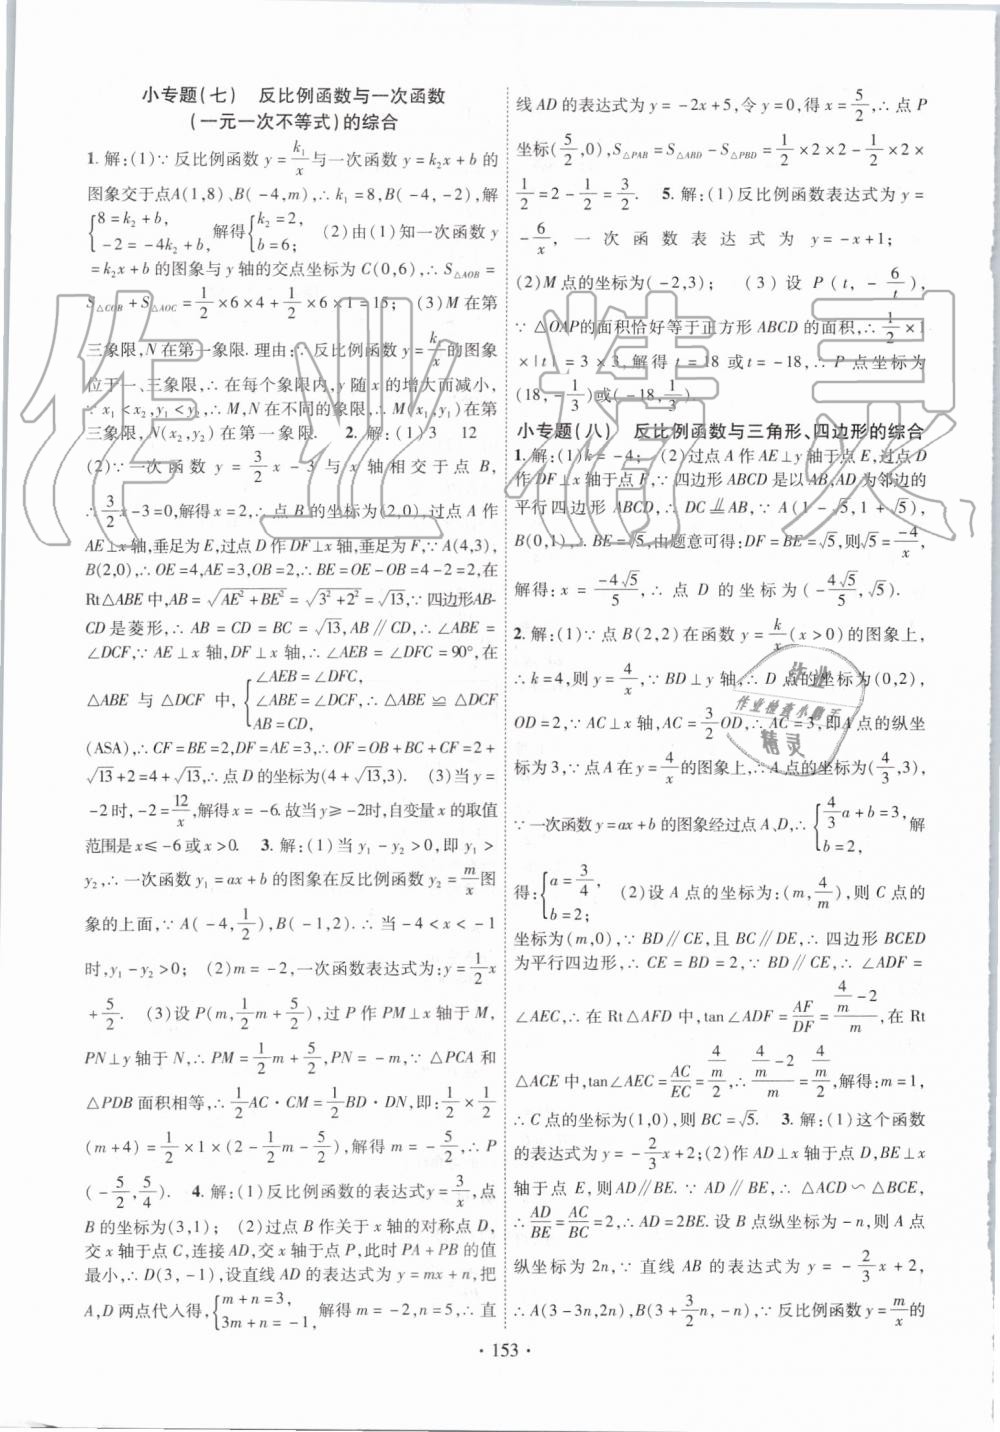 小专题(七) 反比例函数与一次函数
(一元一次不等式)的综合
1. 解:(1)∵反比例函数 y=k₁/x 与一次函数 y=k₂x+b 的
图象交于点A(1,8)、B(-4,m),∴k₁=8,B(-4,-2),解
{8=k₂+b, -2=-4k₂+b, 解得{k₂=2, b=6; (2)由(1)知一次函数 y
=k₂x+b 的图象与 y 轴的交点坐标为 C(0,6),∴S△AOB=
S△COB+S△AOC=1/2×6×4+1/2×6×1=15; (3)M 在第
三象限,N 在第一象限.理由:∵反比例函数 y=k₁/x的图象
位于一、三象限,∴在每个象限内,y 随 x 的增大而减小,
∵x₁<x₂,y₁<y₂,∴M,N 在不同的象限,∴M(x₁,y₁)在第
三象限,N(x₂,y₂)在第一象限. 2. 解:(1)3 12
(2)∵一次函数 y=3/2x-3 与 x 轴相交于点 B,
∴3/2x-3=0,解得 x=2,∴点 B 的坐标为(2,0),过点 A 作
AE⊥x 轴,垂足为 E,过点 D 作 DF⊥x 轴,垂足为 F,∵A(4,3),
B(2,0),∴OE=4,AE=3,OB=2,∴BE=OE-OB=4-2=2,在
Rt△ABE 中,AB=√(AE²+BE²)=√(3²+2²)=√13,∵四边形AB-
CD 是菱形,∴AB=CD=BC=√13,AB∥CD,∴∠ABE=
∠DCF,∵AE⊥x 轴,DF⊥x 轴,∴∠AEB=∠DFC=90°,在
△ABE 与 △DCF 中,{∠AEB=∠DFC, ∠ABE=∠DCF, AB=CD, ∴△ABE≌△DCF
(ASA),∴CF=BE=2,DF=AE=3,∴OF=OB+BC+CF=2+
√13+2=4+√13,∴点 D 的坐标为(4+√13,3). (3)当 y=
-2时,-2=12/x,解得 x=-6.故当 y≥-2时,自变量 x 的取值
范围是 x≤-6或 x>0. 3. 解:(1)当 y₁-y₂>0,即 y₁>
y₂,∴一次函数 y₁=ax+b 的图象在反比例函数 y₂=m/x图
象的上面,∵A(-4,1/2),B(-1,2).∴当-4<x<-1
时,y₁-y₂>0; (2)m=-2,一次函数表达式为:y=1/2x
+5/2. (3)设 P(m,1/2m+5/2),过 P 作 PM⊥x 轴于 M,
PN⊥y 轴于 N,∴PM=1/2m+5/2,PN=-m,∵△PCA 和
△PDB 面积相等,∴1/2AC·CM=1/2BD·DN,即:1/2×1/2×
(m+4)=1/2×1×(2-1/2m-5/2),解得 m=-5/2,∴P
(-5/2,5/4). 4. 解:(1)反比例函数的表达式y=3/x,点
B 的坐标为(3,1); (2)过点 B 作关于 x 轴的对称点 D,
交 x 轴于点 C,连接 AD,交 x 轴于点 P,此时 PA+PB 的值
最小,∴D(3,-1),设直线 AD 的表达式为 y=mx+n,把
A,D 两点代入得,{m+n=3, 3m+n=-1, 解得 m=-2,n=5,∴直
线 AD 的表达式为 y=-2x+5,令 y=0,得 x=5/2,∴点 P
坐标(5/2,0),S△PAB=S△ABD-S△PBD=1/2×2×2-1/2×2×
1/2=2-1/2=3/2. 5. 解:(1)反比例函数表达式为 y=
-6/x,一次函数表达式为 y=-x+1;
(2)M 点的坐标为(-2,3); (3)设 P(t,-6/t),
∵△OAP的面积恰好等于正方形 ABCD 的面积,∴1/2×1
×|t|=3×3,解得 t=18 或t=-18,∴P 点坐标为
(18,-1/3)或(-18,1/3).
小专题(八) 反比例函数与三角形、四边形的综合
1. 解:(1)k=-4; (2)过点 A 作 AE⊥y 轴于点 E,过点 D
作 DF⊥x轴于点 F,∵四边形 ABCD 是以 AB,AD 为邻边的
平行四边形 ABCD,∴DC∥=AB,∵A(1-√5,1+√5),
B(0,1),∴BE=√5,由题意可得:DF=BE=√5,则√5=-4/x,
解得:x=-4√5/5,∴点 D 的坐标为(-4√5/5,√5).
2. 解:(1)∵点 B(2,2)在函数 y=k/x(x>0)的图象上,
∴k=4,则 y=4/x,∵BD⊥y 轴,∴D 点的坐标为(0,2),
OD=2,∵AC⊥x 轴,AC=3/2OD,∴AC=3,即A 点的纵坐
标为3,∵点 A 在 y=4/x的图象上,∴A 点的坐标为(4/3,3),
∵一次函数 y=ax+b 的图象经过点 A、D,∴{4/3a+b=3, b=2, 解
得:{a=3/4, b=2; (2)设 A 点的坐标为:(m,4/m),则 C 点的
坐标为(m,0),∵BD∥CE,且 BC∥DE,∴四边形 BCED
为平行四边形,∴CE=BD=2,∵BD∥CE,∴∠ADF=
∠AEC,∴在 Rt△AFD 中,tan∠ADF=AF/DF=(4/m-2)/m,在 Rt
△ACE 中,tan∠AEC=AC/EC=(4/m)/2,∴(4/m-2)/m=(4/m)/2,解得:m=1,
∴C 点的坐标为(1,0),则 BC=√5. 3. 解:(1)这个函数
的表达式为 y=-2/3x+2;(2)作 AD⊥x 轴于点 D,BE⊥x
轴于点 E,则 AD∥BE.∵AD∥BE,∴△ACD∽△BCE,
∴AD/BE=AC/BC=2,∴AD=2BE.设 B 点纵坐标为-n,则 A 点
纵坐标为 2n,∵直线 AB 的表达式为 y=-2/3x+2,
∴A(3-3n,2n),B(3+3/2n,-n),∵反比例函数 y=m/x的
·153·
作业精灵
作业
作业检查小霸王
精灵